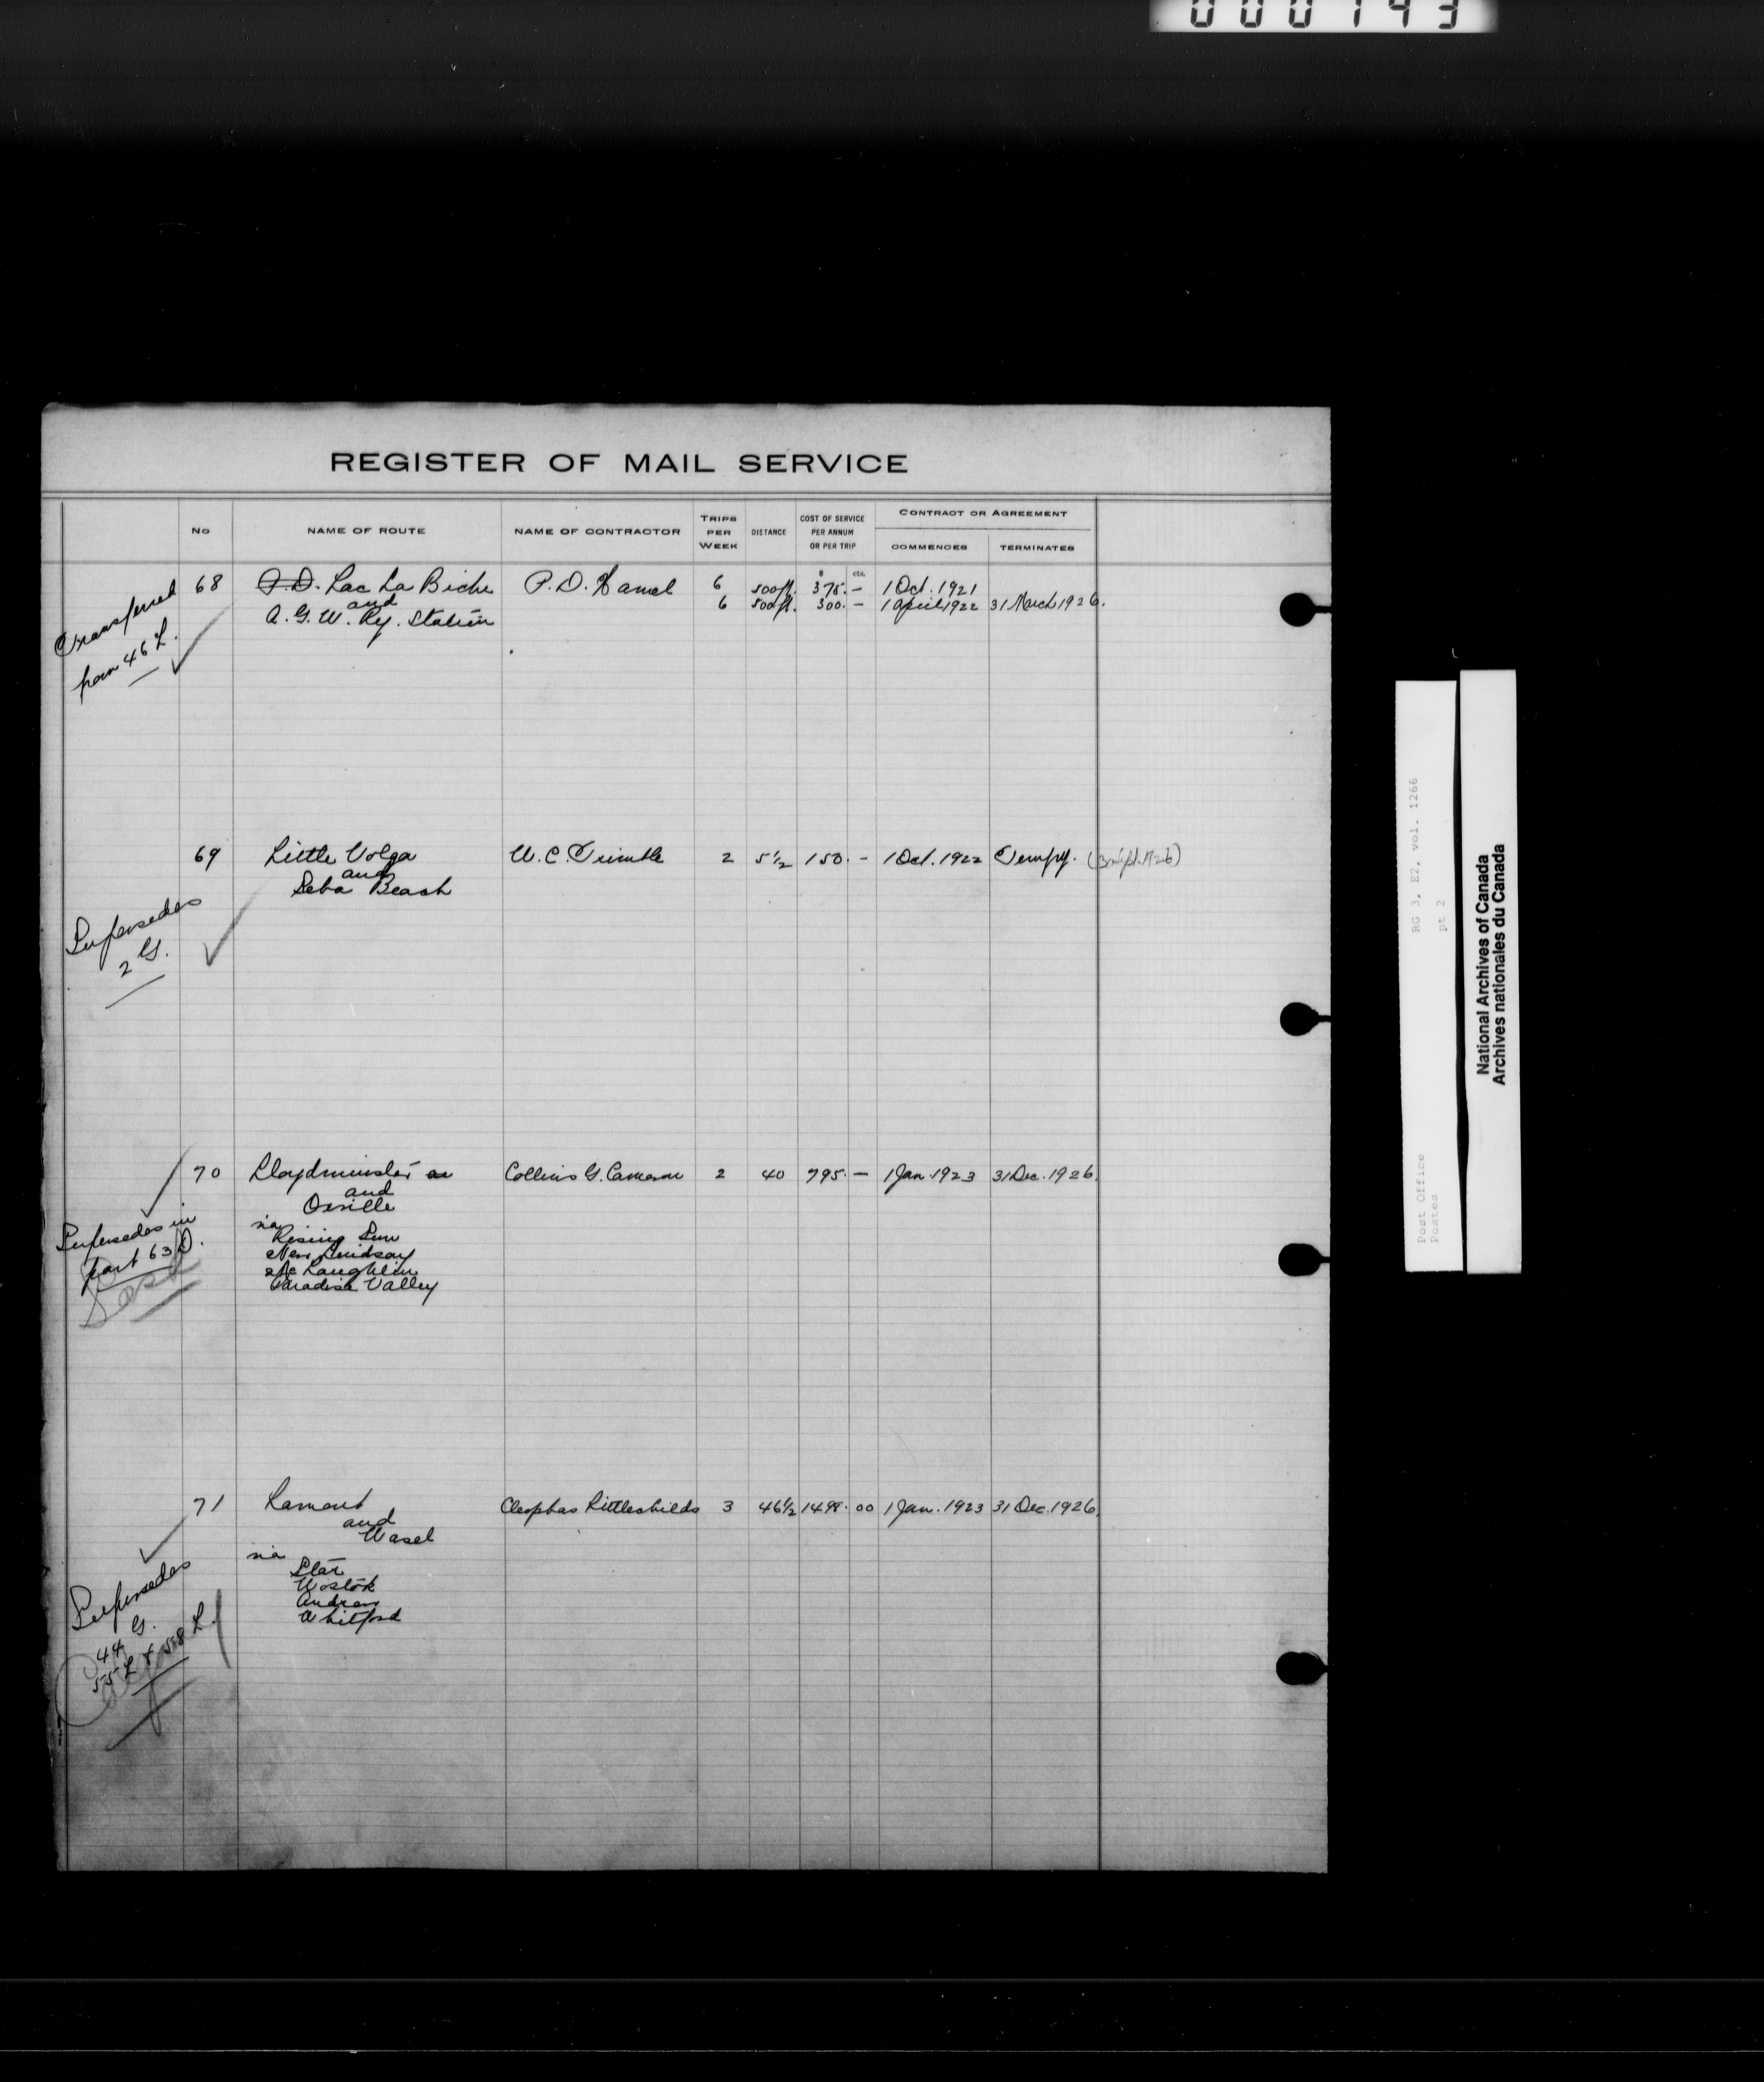 000143
REGISTER OF MAIL SERVICE
No NAME OF ROUTE NAME OF CONTRACTOR TRIPS PER WEEK DISTANCE COST OF SERVICE PER ANNUM OR PER TRIP CONTRACT OR AGREEMENT
COMMENCES TERMINATES
$ cts.
68 P.D. Lac La Biche P. D. Hamel 6 500ft. 375. - 1 Oct. 1921
and 6 500ft. 300. - 1 April 1922 31 March 1926.
A. G. W. Ry. Station
Transferred
from 46 L.
69 Little Volga W. C. Trimble 2 5 1/2 150. - 1 Oct. 1922 Tempy.
and
Seba Beach
Supersedes
2 G.
70 Lloydminster Collins G. Cameron 2 40 795. - 1 Jan. 1923 31 Dec. 1926.
and
Orville
via
Rising Sun
New Lindsay
McLaughlin
Paradise Valley
Supersedes in
part 63 D.
71 Lamont Cleophas Littlechilds 3 46 1/2 1498. 00 1 Jan. 1923 31 Dec. 1926.
and
Wasel
via
Star
Wostok
Andrew
Whitford
Supersedes
44 G.
55 L & 58 L.
Post Office
Postes
RG 3, E2, vol. 1266
pt 2
National Archives of Canada
Archives nationales du Canada